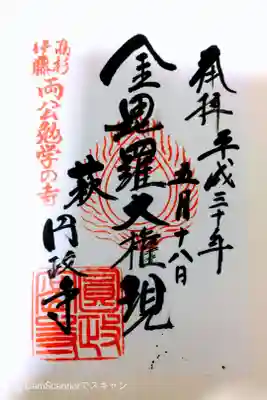 奉拝 平成三十年
五月十八日
金毘羅大権現
萩 円政寺
高杉
伊藤
両公勉学の寺
圓政
CamScannerでスキャン